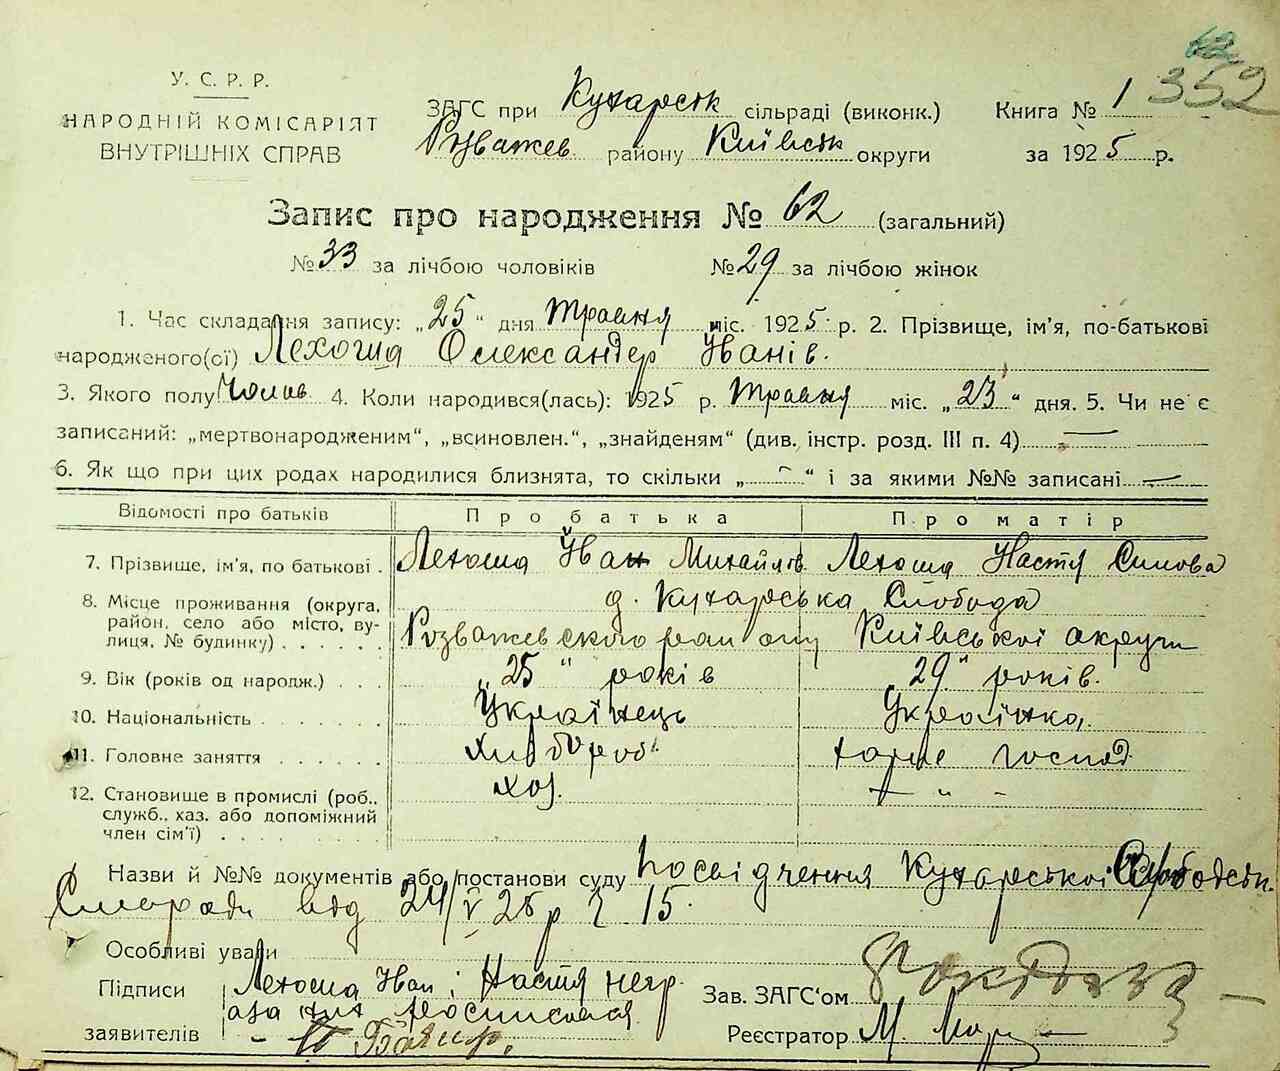 62
352
У. С. Р. Р.
НАРОДНІЙ КОМІСАРІЯТ
ВНУТРІШНІХ СПРАВ
ЗАГС при Кухарськ сільраді (виконк.) Книга № 1
Розважев району Київськ округи за 1925 р.
Запис про народження № 62 (загальний)
№ 33 за лічбою чоловіків № 29 за лічбою жінок
1. Час складання запису: „25“ дня травня міс. 1925 р. 2. Прізвище, ім'я, по-батькові
народженого(ої) Лехоша Олександер Іванів.
3. Якого полу Чолов 4. Коли народився(лась): 1925 р. травня міс. „23“ дня. 5. Чи не є
записаний: „мертвонародженим“, „всиновлен.“, „знайденям“ (див. інстр. розд. III п. 4) —
6. Як що при цих родах народилися близнята, то скільки „ - “ і за якими №№ записані —
Відомості про батьків Про батька Про матір
7. Прізвище, ім'я, по батькові . Лехоша Іван Михайлів Лехоша Настя Силова
8. Місце проживання (округа, д. Кухарська Слобода
район, село або місто, вулиця, № будинку) . . . . . . Розважевського району Київської округи
9. Вік (років од народж.) . . . „25“ років „29“ років.
10. Національність . . . . . . . Українець Українка,
11. Головне заняття . . . . . . хлібороб. хатнє господ.
12. Становище в промислі (роб., хоз. — „ -
служб., хаз. або допоміжний
член сім'ї) . . . .
Назви й №№ документів або постанови суду посвідчення Кухарської Слободськ.
Сільради від 24/V 25 р № 15.
Особливі уваги
Підписи Лехоша Іван і Настя негр Зав. ЗАГС'ом
заявителів Реєстратор М.